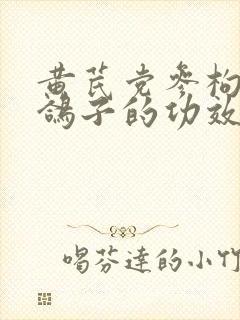 黄芪党参枸
鸽子的功效
喝芬达的小竹